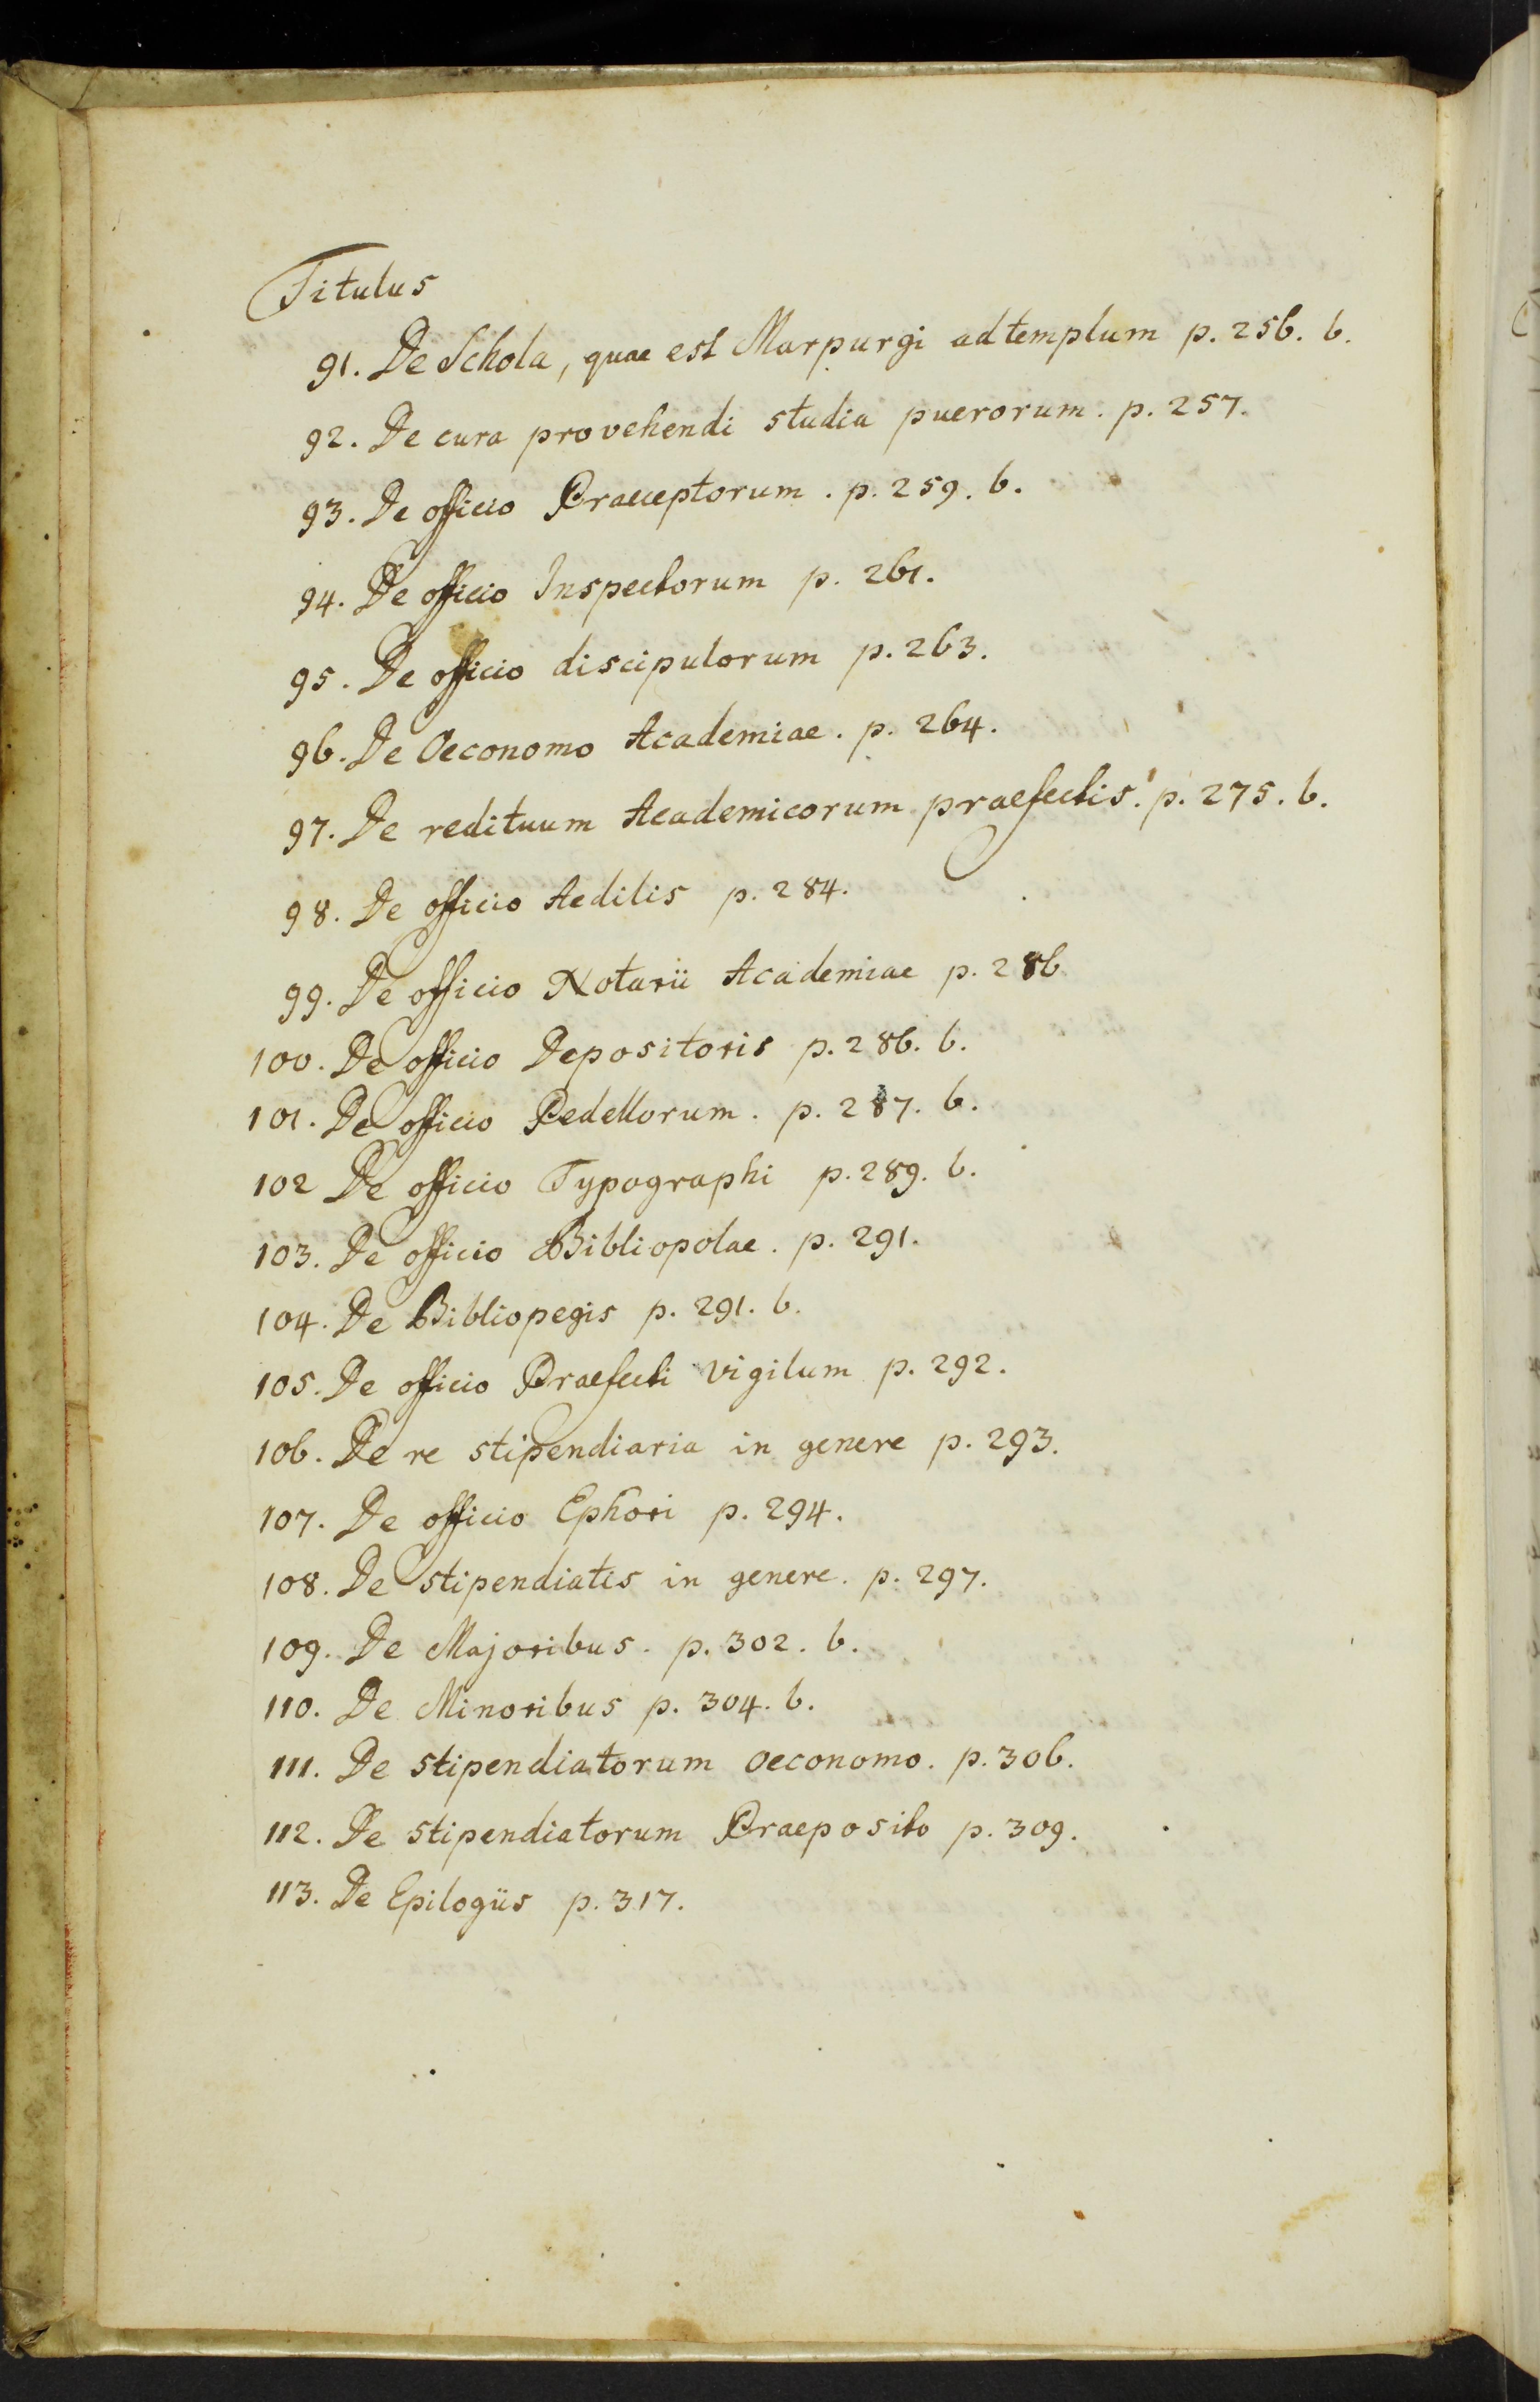 Titulus
91. De Schola, quae est Marpurgi ad templum p. 256. b.
92. De cura provehendi studia puerorum. p. 257.
93. De officio Praeceptorum. p. 259. b.
94. De officio Inspectorum p. 261.
95. De officio discipulorum p. 263.
96. De Oeconomo Academiae. p. 264.
97. De redituum Academicorum praefectis. p. 275. b.
98. De officio Aedilis p. 284.
99. De officio Notarii Academiae p. 286
100. De officio Depositoris p. 286. b.
101. De officio Pedellorum. p. 287. b.
102 De officio Typographi p. 289. b.
103. De officio Bibliopolae. p. 291.
104. De Bibliopegis p. 291. b.
105. De officio Praefecti vigilum p. 292.
106. De re stipendiaria in genere p. 293.
107. De officio Ephori p. 294.
108. De stipendiatis in genere. p. 297.
109. De Majoribus. p. 302. b.
110. De Minoribus p. 304. b.
111. De stipendiatorum oeconomo. p. 306.
112. De stipendiatorum Praeposito p. 309.
113. De Epilogiis p. 317.